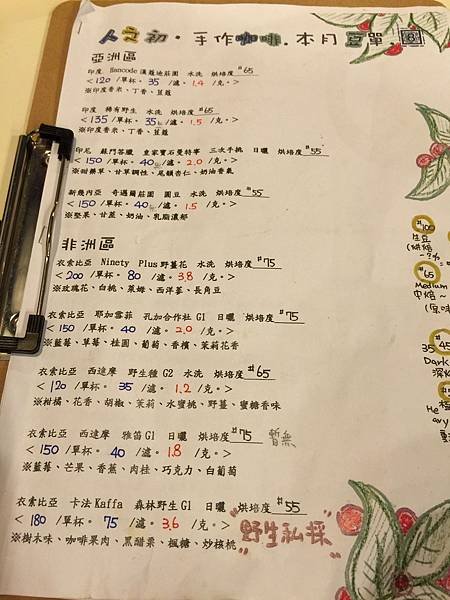 人之初・手作咖啡.本月豆單.
亞洲區
印度 Bancode 瀰蔻迪莊園 水洗 烘培度 #65
< 120 /單杯。 35 /濾。 1.4 /克。>
※印度香米、丁香、荳蔻
印度 稀有野生 水洗 烘培度 #65
< 135 /單杯。 35 /濾。 1.5 /克。>
※印度香米、丁香、荳蔻
印尼 蘇門答臘 皇家寶石曼特寧 三次手挑 日曬 烘培度 #55
< 150 /單杯。 40 /濾。 2.0 /克。>
※甜藥草、甘草調性、尾韻杏仁、奶油香氣
新幾內亞 奇邁爾莊園 圓豆 水洗 烘培度 #55
< 150 /單杯。 40 /濾。 1.5 /克。>
※堅果、甘蔗、奶油、乳脂濃郁
非洲區
衣索比亞 Ninety Plus 野薑花 水洗 烘培度 #75
< 200 /單杯。 80 /濾。 3.8 /克。>
※玫瑰花、白桃、萊姆、西洋蔘、長角豆
衣索比亞 耶加雪菲 孔加合作社 G1 日曬 烘培度 #75
< 150 /單杯。 40 /濾。 2.0 /克。>
※藍莓、草莓、桂圓、葡萄、香檳、茉莉花香
衣索比亞 西達摩 野生種 G2 水洗 烘培度 #65
< 120 /單杯。 35 /濾。 1.2 /克。>
※柑橘、花香、胡椒、茉莉、水蜜桃、野薑、蜜糖香味
衣索比亞 西達摩 雅笛 G1 日曬 烘培度 #75 暫無
< 150 /單杯。 40 /濾。 1.8 /克。>
※藍莓、芒果、香蕉、肉桂、巧克力、白葡萄
衣索比亞 卡法 Kaffa 森林野生 G1 日曬 烘培度 #55
< 180 /單杯。 75 /濾。 3.6 /克。> "野生私採"
※樹木味、咖啡果肉、黑醋栗、楓糖、炒核桃
#100
生豆
#65
Medium
中焙~
(原味
35 #45
Dark
深焙
He
avy